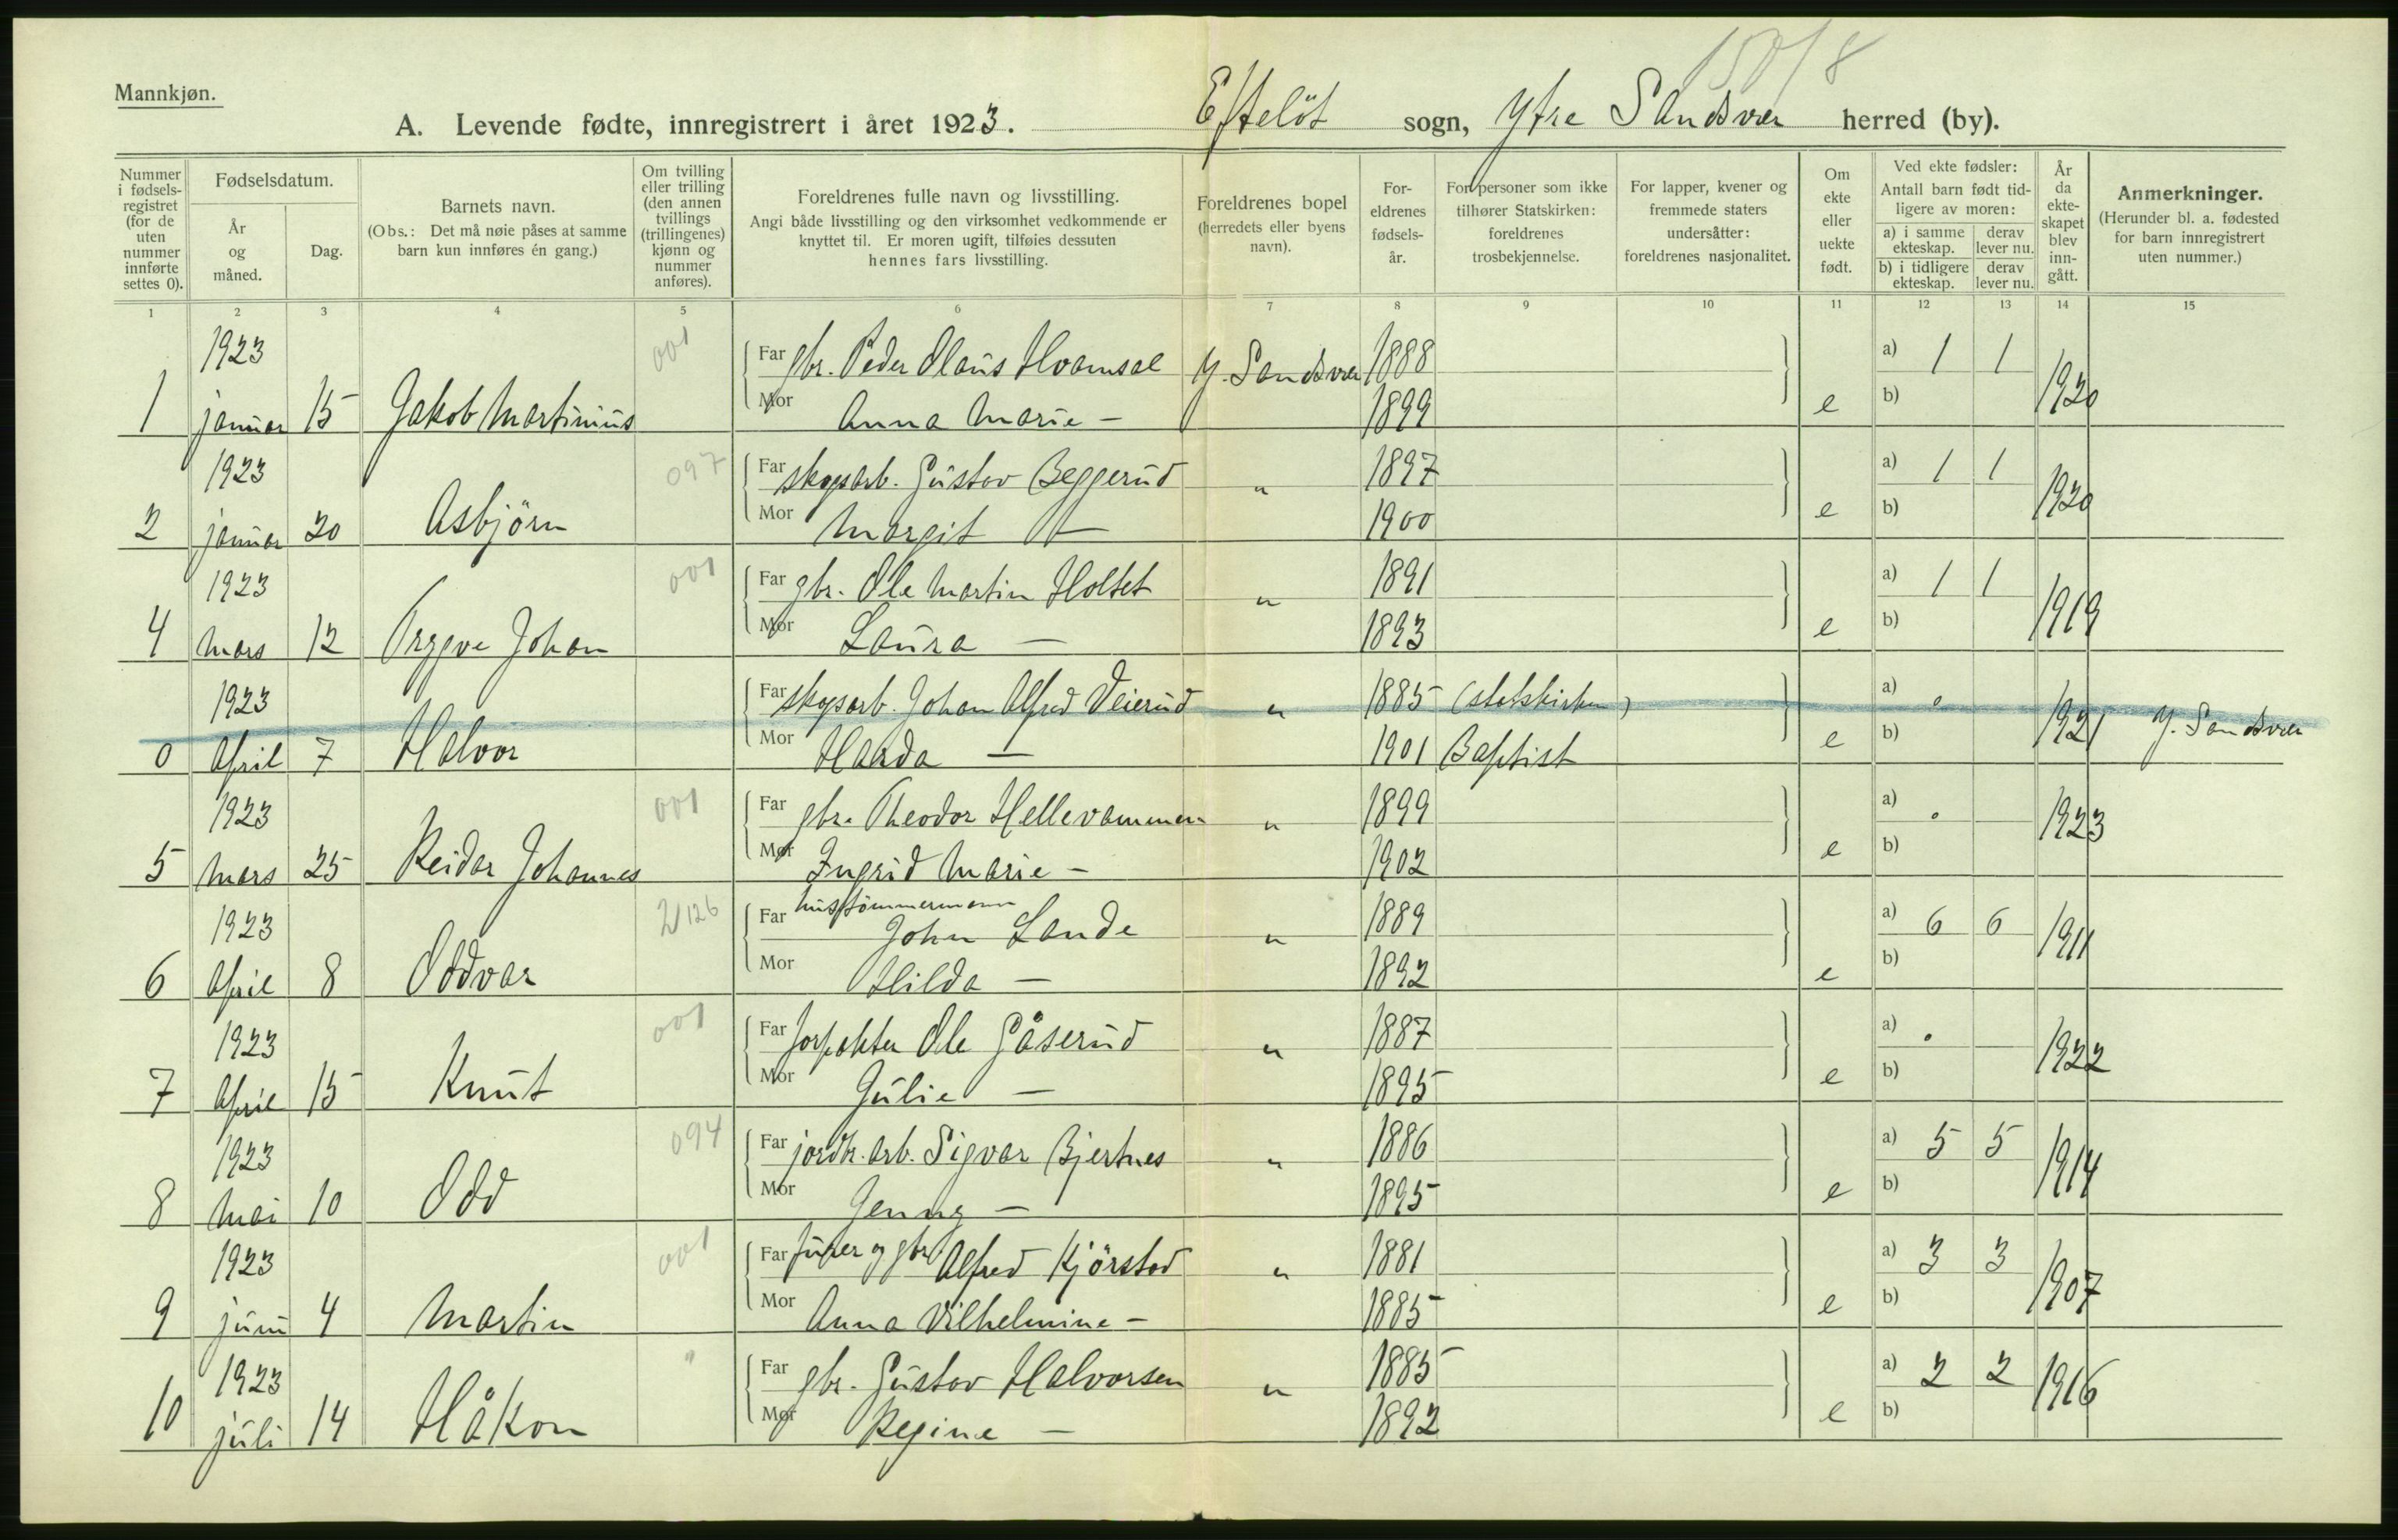 1501 8
Mannkjøn.
A. Levende fødte, innregistrert i året 1923. Efteløt sogn, Ytre Sandsvær herred (by).
Nummer i fødsels-registret (for de uten nummer innførte settes 0).
Fødselsdatum.
År og måned.
Dag.
Barnets navn.
(Obs.: Det må nøie påses at samme barn kun innføres én gang.)
Om tvilling eller trilling (den annen tvillings (trillingenes) kjønn og nummer anføres).
Foreldrenes fulle navn og livsstilling.
Angi både livsstilling og den virksomhet vedkommende er knyttet til. Er moren ugift, tilføies dessuten hennes fars livsstilling.
Foreldrenes bopel (herredets eller byens navn).
For-eldrenes fødsels-år.
For personer som ikke tilhører Statskirken: foreldrenes trosbekjennelse.
For lapper, kvener og fremmede staters undersåtter: foreldrenes nasjonalitet.
Om ekte eller uekte født.
Ved ekte fødsler:
Antall barn født tid-ligere av moren:
a) i samme ekteskap. derav lever nu.
b) i tidligere ekteskap. derav lever nu.
År da ekte-skapet blev inn-gått.
Anmerkninger.
(Herunder bl. a. fødested for barn innregistrert uten nummer.)
1 2 3 4 5 6 7 8 9 10 11 12 13 14 15
1923 001 Far gbr. Peder Olaus Hvamsal Y. Sandsvær 1888 a) 1 1
1 januar 15 Jakob Martinius Mor Anna Marie — 1899 e b) 1920
1923 097 Far skogsarb. Gustav Beggerud „ 1897 a) 1 1
2 januar 20 Asbjörn Mor Margit — 1900 e b) 1920
1923 001 Far gbr. Ole Martin Holtet „ 1891 a) 1 1
4 mars 12 Trygve Johan Mor Laura — 1893 e b) 1919
1923 Far skogsarb. Johan Alfred Veierud „ 1885 (statskirken) a) 0
0 April 7 Halvor Mor Harda — 1901 Baptist e b) 1921 Y. Sandsvær
1923 001 Far gbr. Theodor Hellevammen „ 1899 a) 0 —
5 mars 25 Reidar Johannes Mor Ingrid Marie — 1902 e b) 1923
1923 2/126 Far hustömmermann
John Lande „ 1889 a) 6 6
6 April 8 Oddvar Mor Hilda — 1892 e b) 1911
1923 001 Far forpakter Ole Gåserud „ 1887 a) 0 —
7 April 15 Knut Mor Julie — 1895 e b) 1922
1923 094 Far jordbr.arb. Sigvar Bjertnes „ 1886 a) 5 5
8 mai 10 Odd Mor Jenny — 1895 e b) 1914
1923 001 Far og gbr. Alfred Kjörstad „ 1881 a) 3 3
9 juni 4 Martin Mor Anna Vilhelmine — 1885 e b) 1907
1923 " Far gbr. Gustav Halvorsen „ 1885 a) 2 2
10 juli 14 Håkon Mor Regine — 1892 e b) 1916